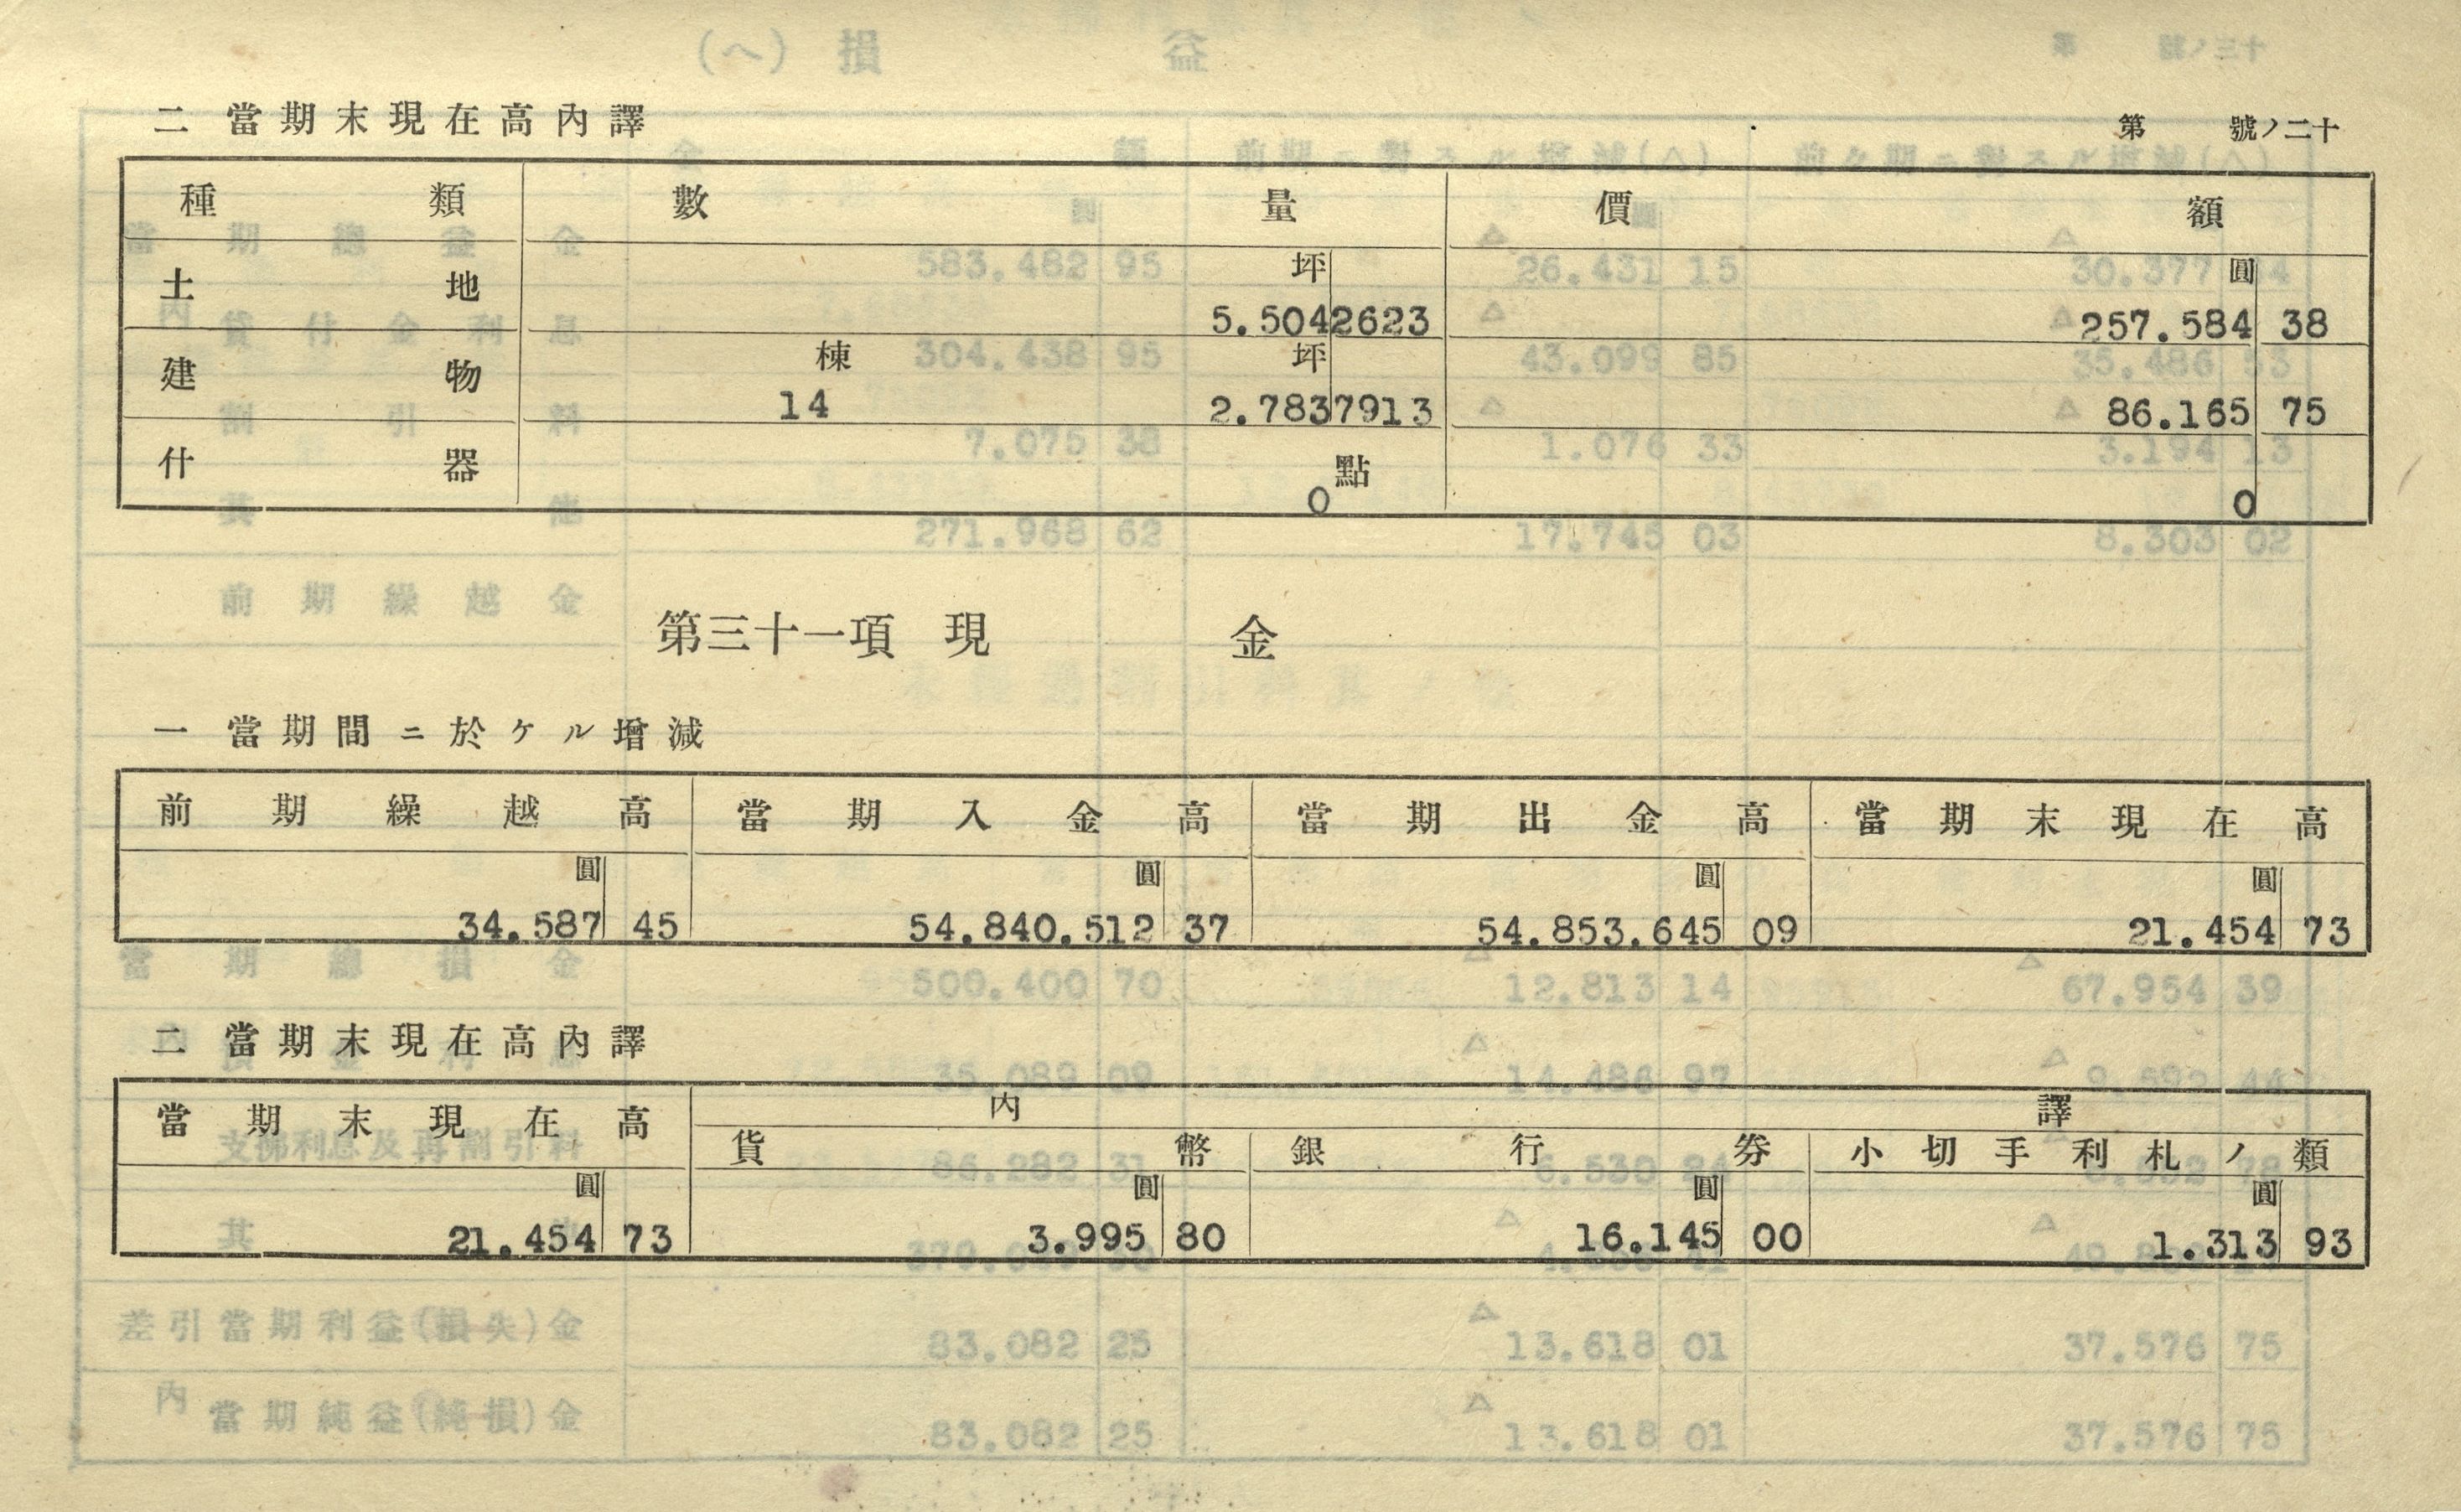 二 當期末現在高內譯
第 號ノ二十
種類 數量 價額
土地 坪 5.504 2623 圓 257.584 38
建物 棟 14 坪 2.783 7913 86.165 75
什器 點 0 0
第三十一項 現金
一 當期間ニ於ケル增減
前期繰越高 當期入金高 當期出金高 當期末現在高
圓 圓 圓 圓
34.587 45 54.840.512 37 54.853.645 09 21.454 73
二 當期末現在高內譯
當期末現在高 內譯
貨幣 銀行券 小切手利札ノ類
圓 圓 圓 圓
21.454 73 3.995 80 16.145 00 1.313 93